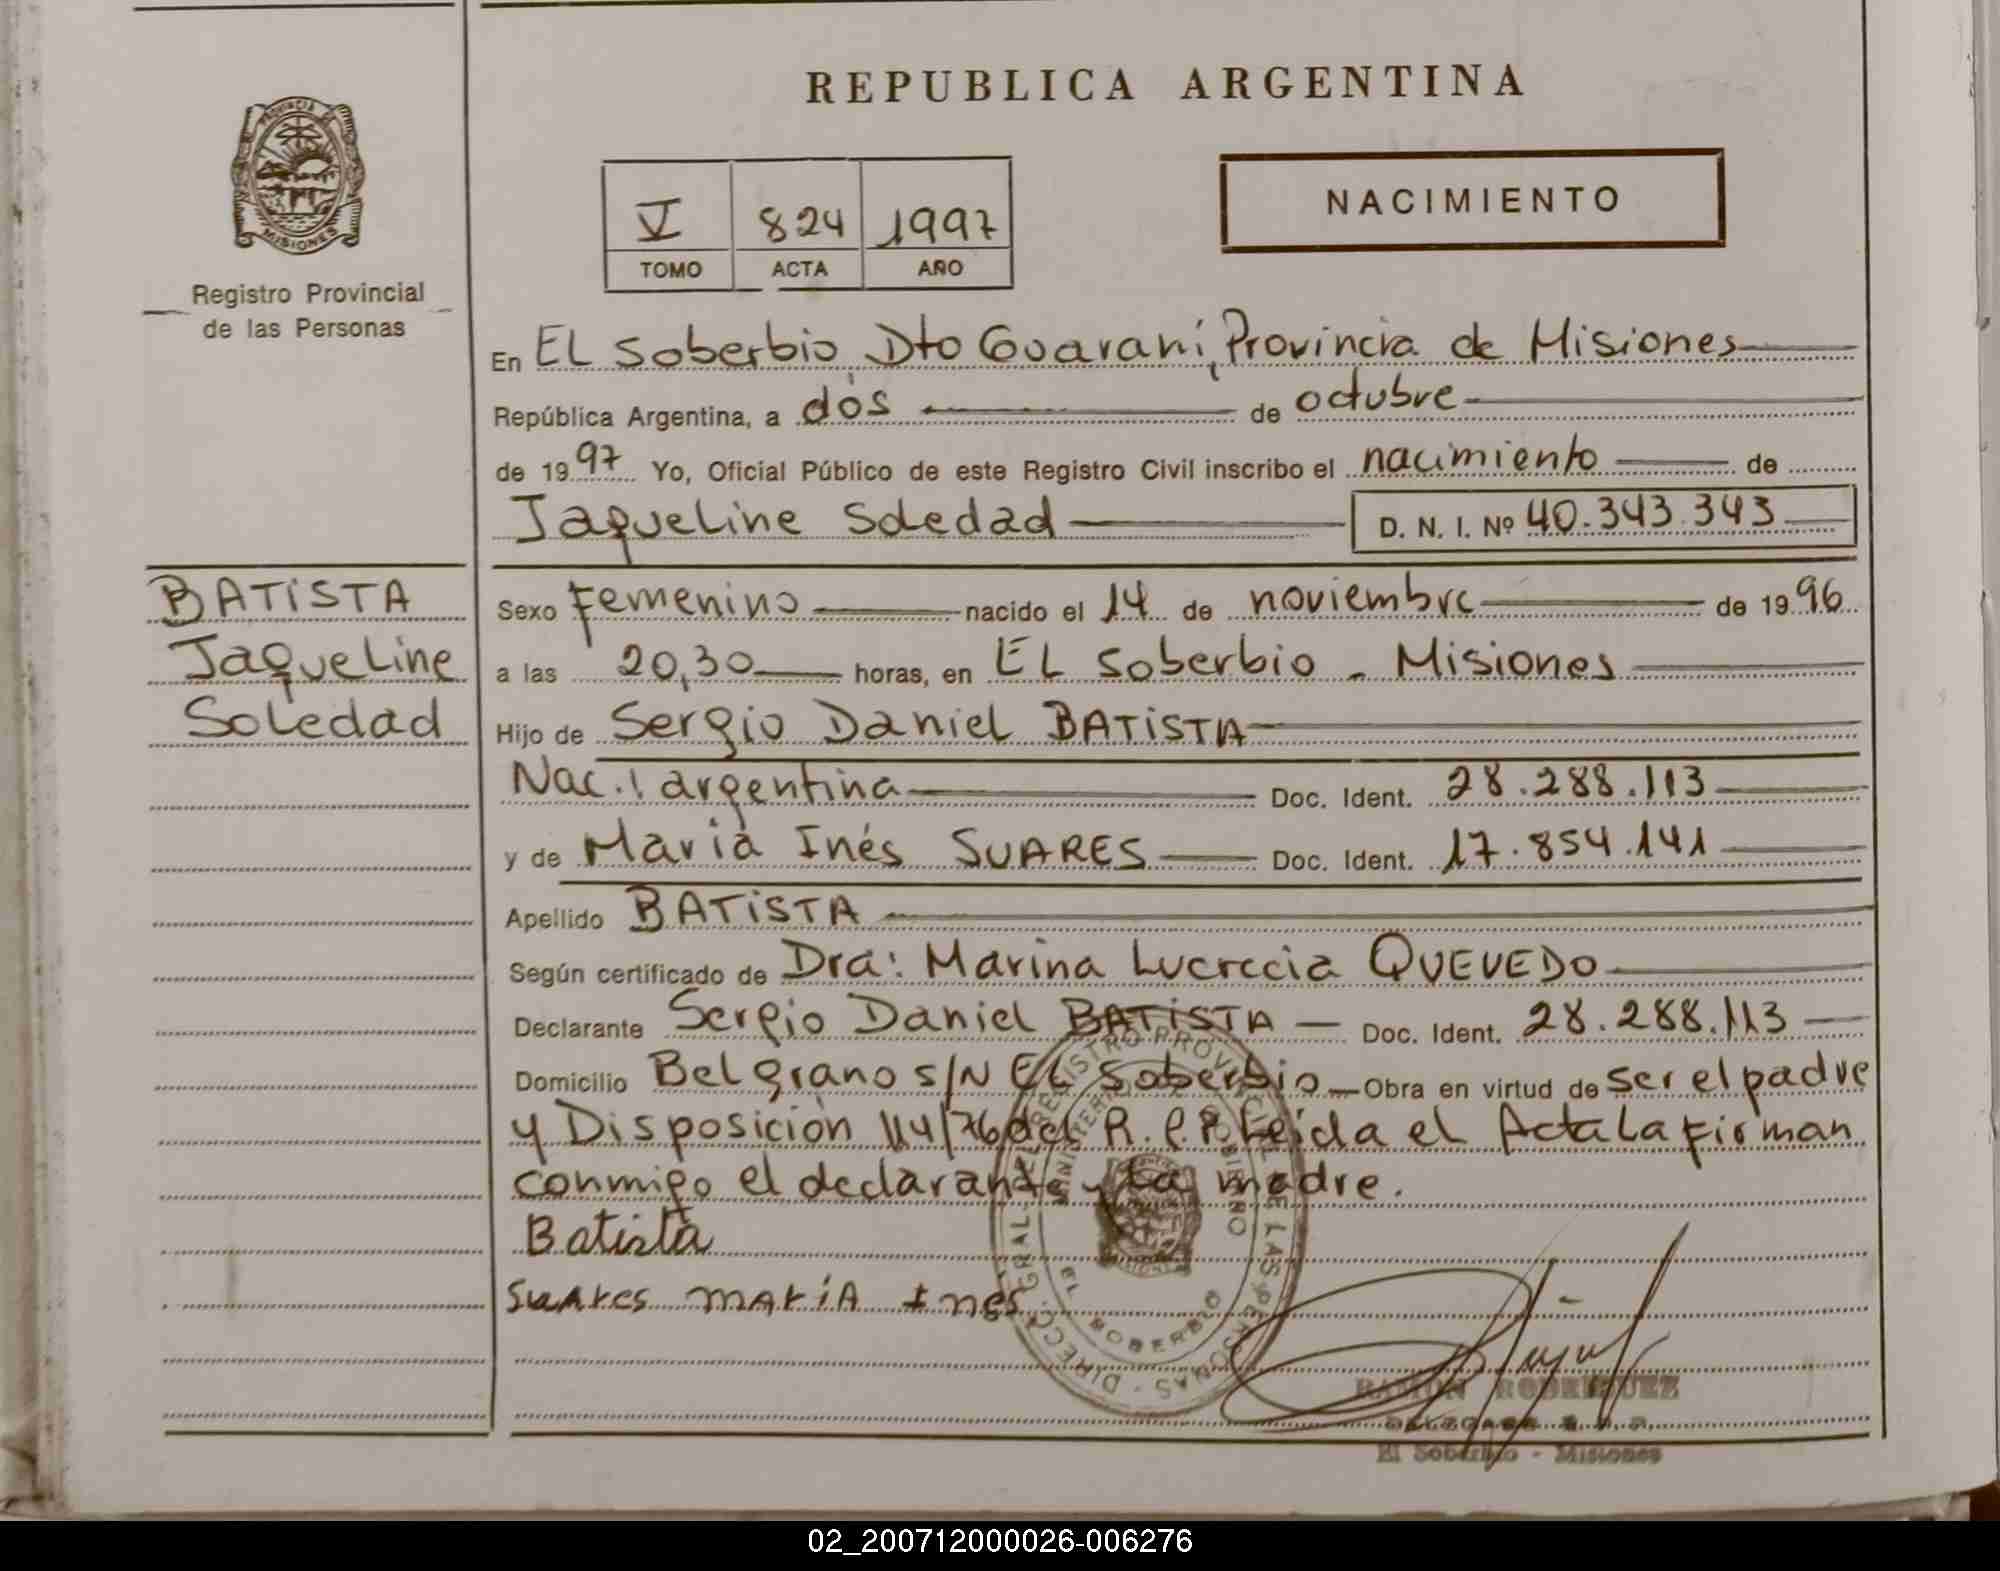 REPUBLICA ARGENTINA
PROVINCIA DE
MISIONES
Registro Provincial
de las Personas
V 824 1997
TOMO ACTA AÑO
NACIMIENTO
En EL Soberbio Dto Guaraní, Provincia de Misiones
República Argentina, a dos de octubre
de 1997 Yo, Oficial Público de este Registro Civil inscribo el nacimiento de
Jaqueline Soledad D. N. I. Nº 40.343.343
BATISTA
Jaqueline
Soledad
Sexo Femenino nacido el 14 de noviembre de 1996
a las 20,30 horas, en EL Soberbio - Misiones
Hijo de Sergio Daniel BATISTA
Nac.: argentina Doc. Ident. 28.288.113
y de María Inés SUARES Doc. Ident. 17.854.141
Apellido BATISTA
Según certificado de Dra: Marina Lucrecia QUEVEDO
Declarante Sergio Daniel BATISTA — Doc. Ident. 28.288.113
Domicilio Belgrano S/N EL Soberbio — Obra en virtud de ser el padre
y Disposición 114/76 del R.P.P. Leída el Acta la firman
conmigo el declarante y la madre.
Batista
Suares María Inés
DIRECC. GRAL. DEL REGISTRO PROVINCIAL DE LAS PERSONAS
MINISTERIO GOBIERNO
EL SOBERBIO
RAMON RODRIGUEZ
DELEGADO R. P. P.
El Soberbio - Misiones
02_200712000026-006276